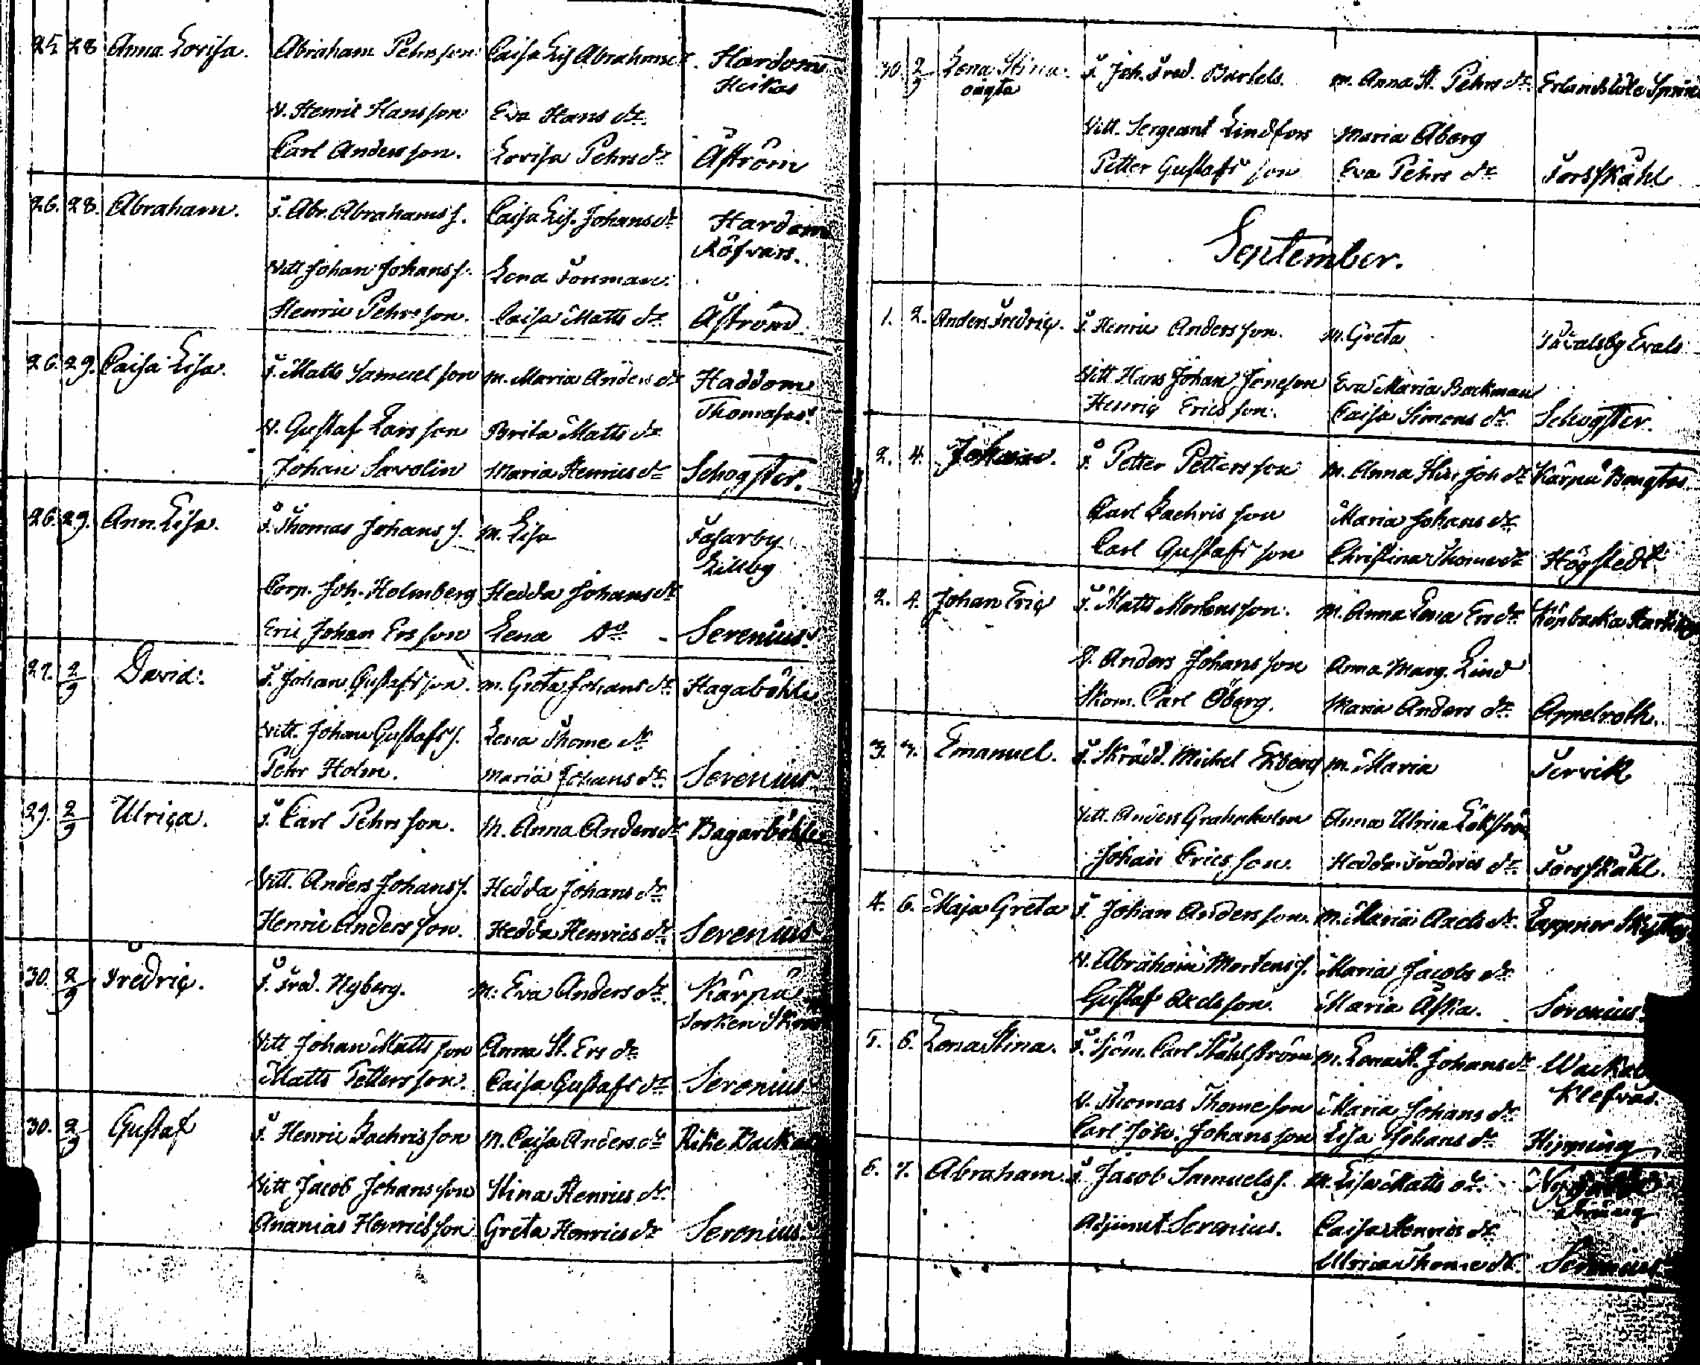 25. 28 Anna Lovisa. Abraham Pehrsson Caisa Lis Abrahms dr. Hardom
Heikas
V. Henric Hansson Eva Hans dr.
Carl Andersson. Lovisa Pehrs dr. Åström
26. 28. Abraham. F. Abr. Abrahams s. Caisa Lis. Johans dr. Hardom
Röfvars.
Vitt Johan Johans s. Lena Forsman.
Henric Pehrsson. Caisa Matts dr. Åström
26. 29. Caisa Lisa. F. Matts Samuelsson m. Maria Anders dr. Haddom
Thomasas.
V. Gustaf Larsson Brita Matts dr.
Johan Savolin Maria Henrics dr. Schogster.
26. 29. Ann. Lisa. F. Thomas Johans s. m. Lisa Fasarby
Lillby
Corp. Joh. Holmberg Hedda Johans dr.
Eric Johan Ersson Lena Do. Serenius.
27. 2/9 David. F. Johan Gustafsson. m. Greta Johans dr. Hagaböhle
Vitt. Johan Gustafs s. Lena Thome dr.
Pehr Holm. Maria Johans dr. Serenius
29. 2/9 Ulrica. F. Carl Pehrsson. M. Anna Anders dr. Bagarböhle
Vitt. Anders Johans s. Hedda Johans dr.
Henric Andersson. Hedda Henrics dr. Serenius
30. 2/9 Fredric. F. Fred. Nyberg. M. Eva Anders dr. Kärpä
Vitt Johan Mattsson Anna St. Ers dr.
Matts Pettersson. Caisa Gustafs dr. Serenius
30. 2/9 Gustaf F. Henric Zachrisson M. Caisa Anders dr.
Vitt Jacob Johansson Stina Henrics dr.
Ananias Henricsson Greta Henrics dr. Serenius.
30. 2/9 Lena Stina. F. Joh. Fred. Bartels. m. Anna St. Pehrs dr. Erlandsböle
oägta
Vitt. Sergeant Lindfors Maria Åberg
Petter Gustafsson Eva Pehrs dr. Forsskåhl
September.
1. 2. Anders Fredric. F. Henric Andersson. M. Greta
Vitt Hans Johan Joncson Eva Maria Backman
Henric Ericsson. Caisa Simons dr. Schogster.
2. 4. Johan. F. Petter Pettersson M. Anna Joh dr. Kärpä Bengtas
Carl Zachrisson Maria Johans dr.
Carl Gustafsson Christina Thome dr. Högstedt
2. 4. Johan Eric F. Matts Mortensson. M. Anna Lena Ers dr. Köpbacka
V. Anders Johansson Anna Marg. Lind
Skom. Carl Öberg. Maria Anders dr. Appelroth.
3. 7. Emanuel. F. Skrädd. Michel Ekberg m. Maria Tervik
Vitt. Anders Grahnholm Anna Ulrica
Johan Ericsson. Hedda Fredrics dr. Forsskåhl.
4. 6. Maja Greta F. Johan Andersson. M. Maria Axels dr. Lappnor
V. Abraham Mortens s. Maria Jacobs dr.
Gustaf Axelsson. Maria Aska. Serenius.
5. 6. Lena Stina. F. Sjöm. Carl Ståhlström m. Lena St. Johans dr.
Klefvas.
V. Thomas Thomeson Maria Johans dr.
Carl Joh. Johansson Lisa Johans dr. Hipping
6. 7. Abraham F. Jacob Samuels s. M. Lisa Matts dr.
Adjunct Serenius. Caisa Henrics dr.
Ulrica Thome dr. Serenius